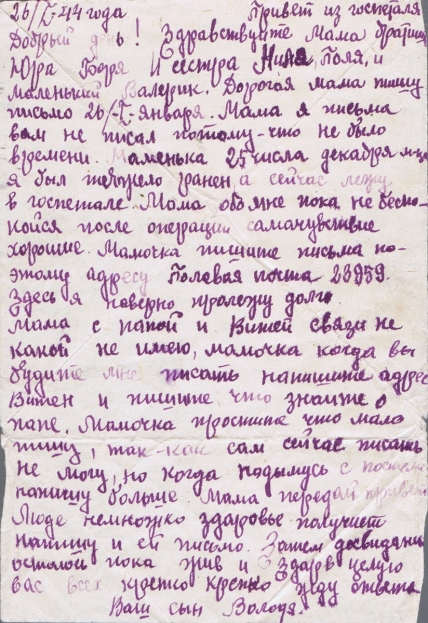 26/I-44 года Привет из госпеталя
Добрый день! Здравствуите Мама братишк
Юра Боря и сестра Нина, Поля, и
маленький Валерик. Дорогая мама пишу
письмо 26/I-января. Мама я письма
вам не писал потому-что не было
времени. Маменька 25 числа декабря м-ца
я был тяжело ранен, а сейчас лежу
в госпетале. Мама обо мне пока не беспо-
койся после операции самачувствие
хорошие. Мамочка пишите письма по-
этому адресу Полевая почта 23959.
Здесь я наверно пролежу долго.
Мама с папой и Витей связи не
какой не имею, мамочка когда вы
будите мне писать напишите адрес
Витен и пишите что знаите о
папе. Мамочка простите что мало
пишу, так-как сам сейчас писать
не могу, но когда подымусь с постели
напишу больше. Мама передай привет
Люде немножко здоровье получшет
напишу и ей письмо. Затем досвидание
остаюсь пока жив и здоров целую
вас всех крепко крепко жду ответа
Ваш сын Володя.